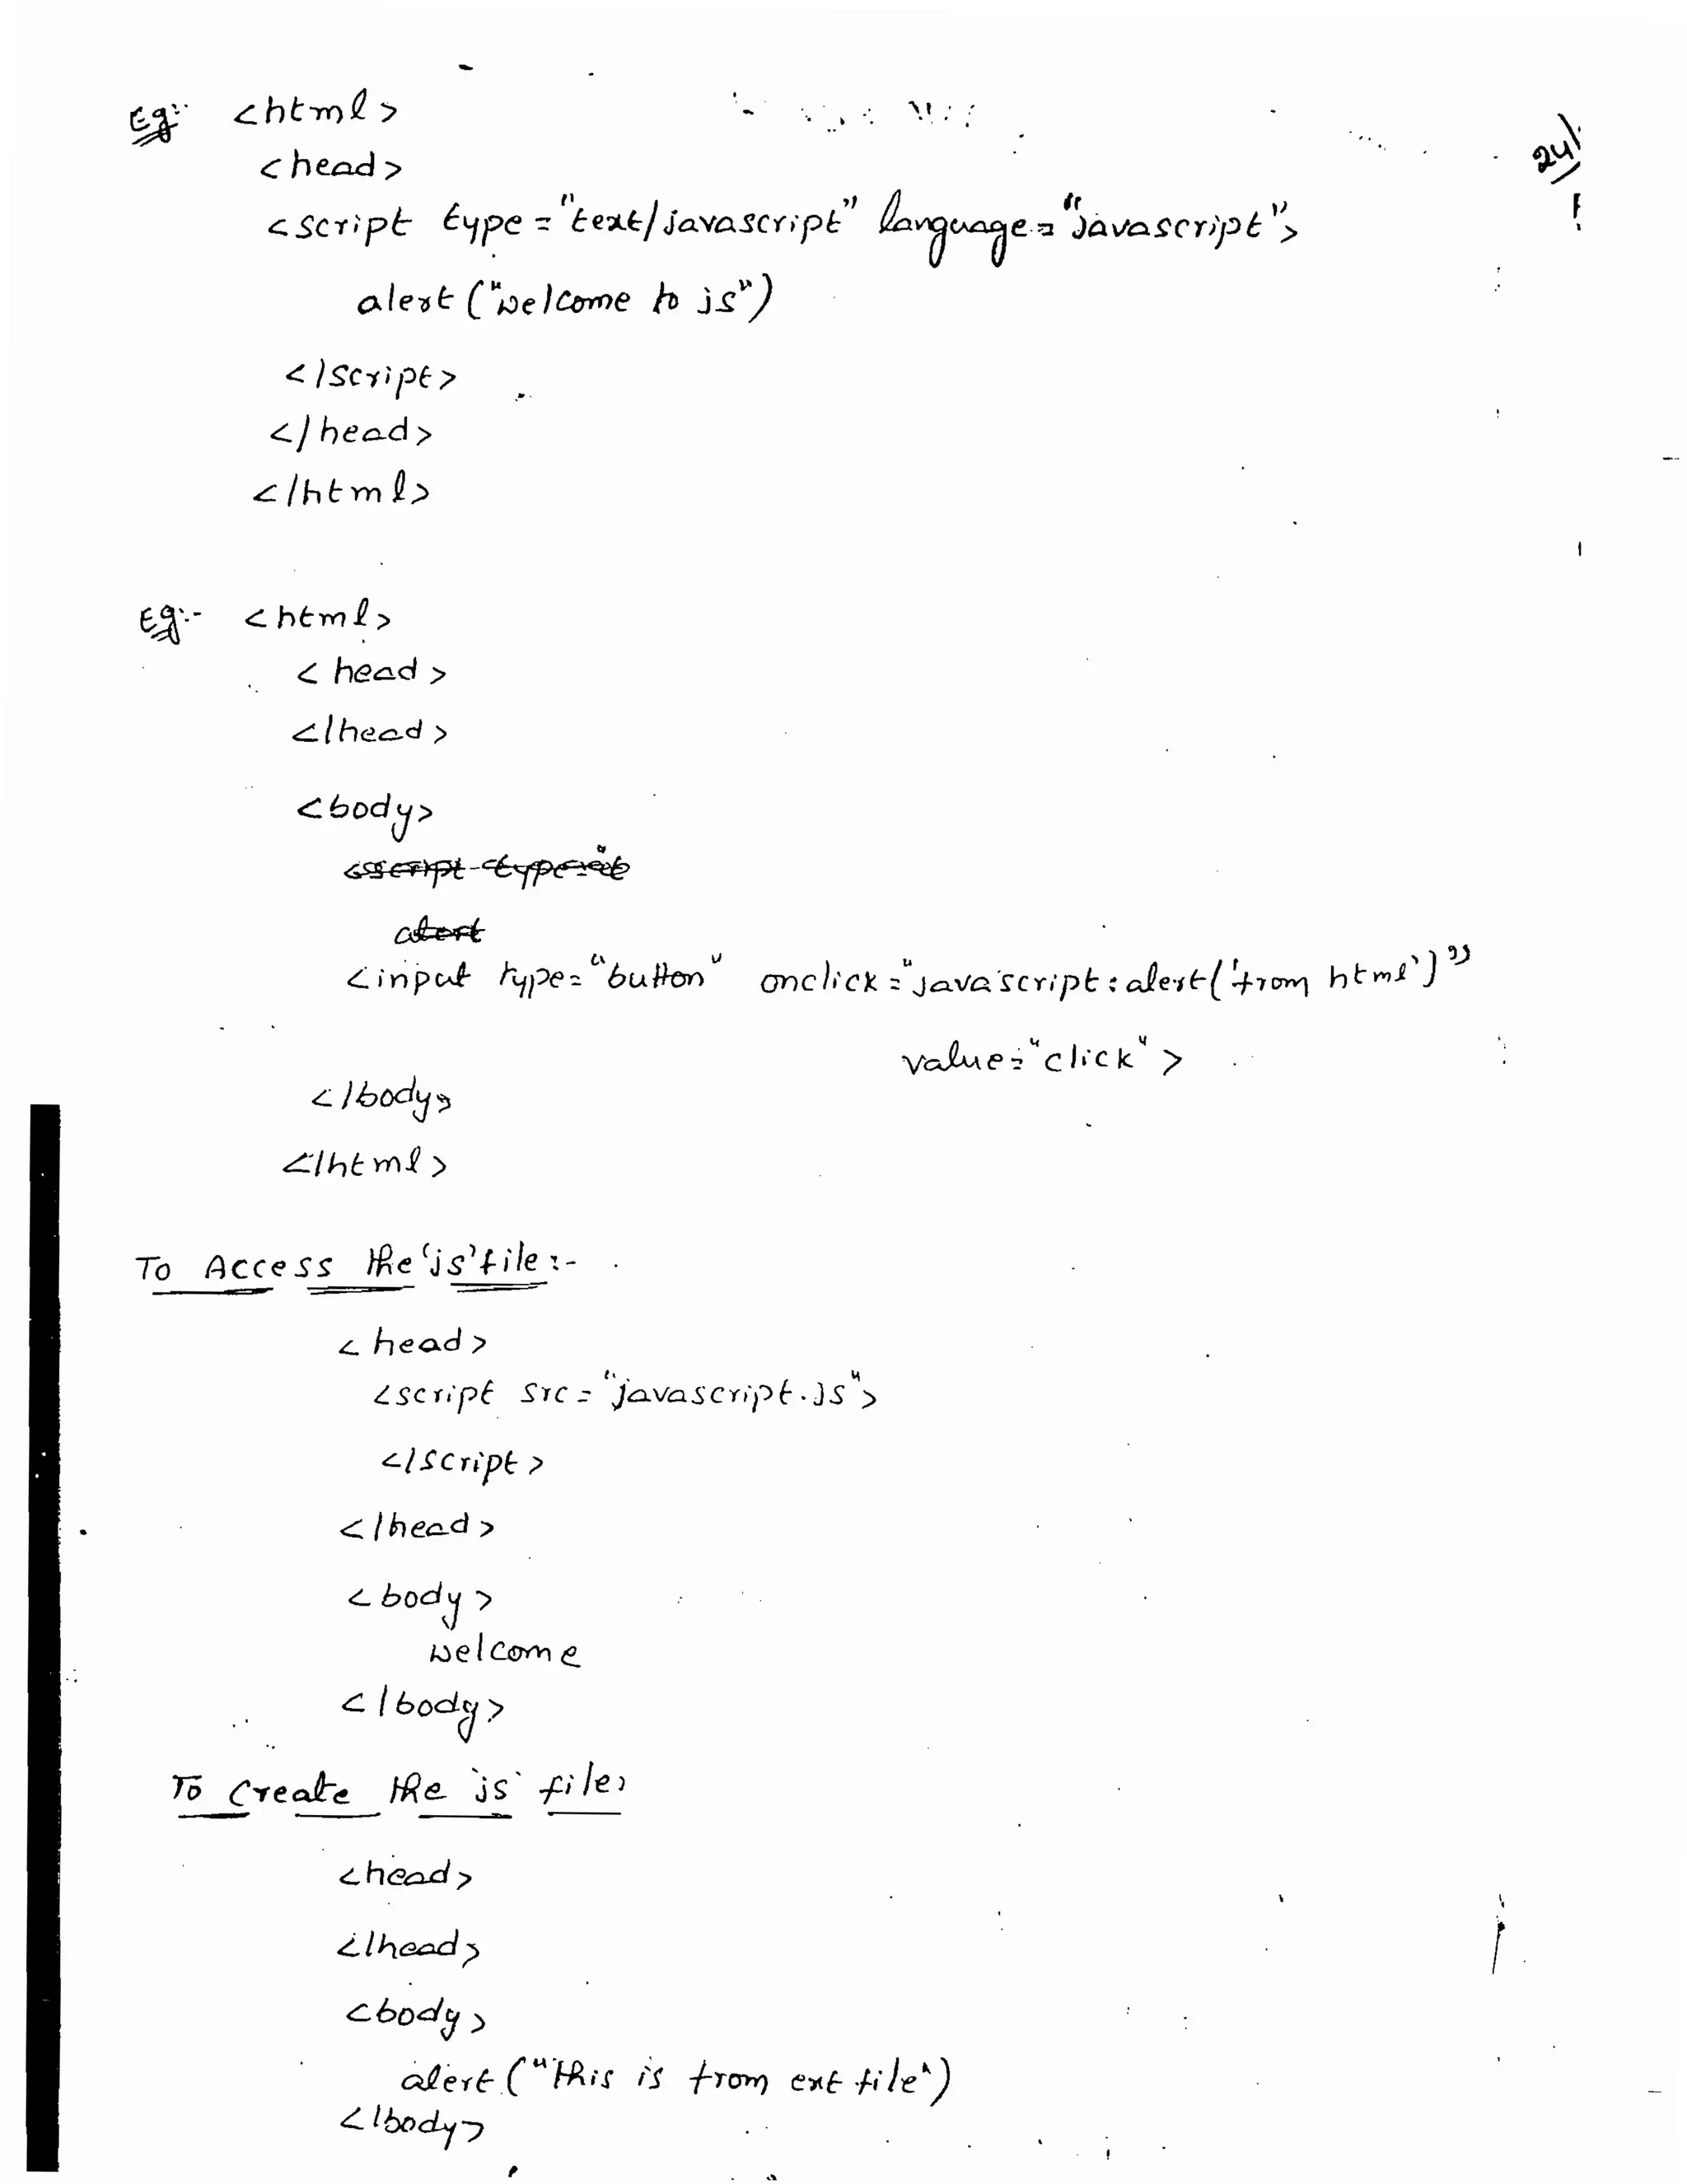 24
Eg:- <html>
<head>
<script type = "text/javascript" language = "Javascript">
alert ("Welcome to js")
</script>
</head>
</html>
Eg:- <html>
<head>
</head>
<body>
<input type = "button" onclick = "javascript : alert('from html')"
value = "click" >
</body>
</html>
To Access the 'js' file :-
<head>
<script src = "javascript.js">
</script>
</head>
<body>
Welcome
</body>
To Create the 'js' file:
<head>
</head>
<body>
alert ("This is from ext file")
</body>